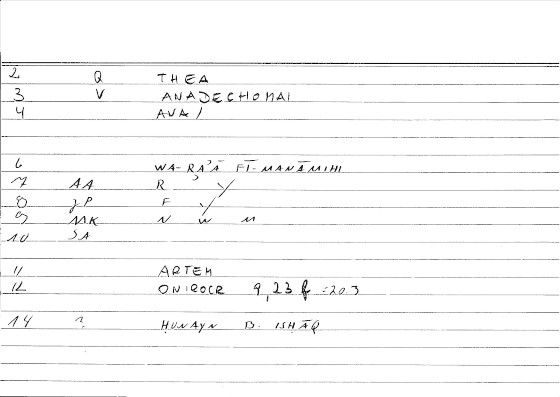 2 Q THEA
3 V ANADECHOMAI
4
6 WA-RAʾĀ FĪ-MANĀMIHI
7 AA R ʾ Y
8 F Y
9 MK N W M
10 SA
11 ARTEM
12 ONIROCR 9,23 f =203
14 ? ḤUNAYN B. ISḤĀQ